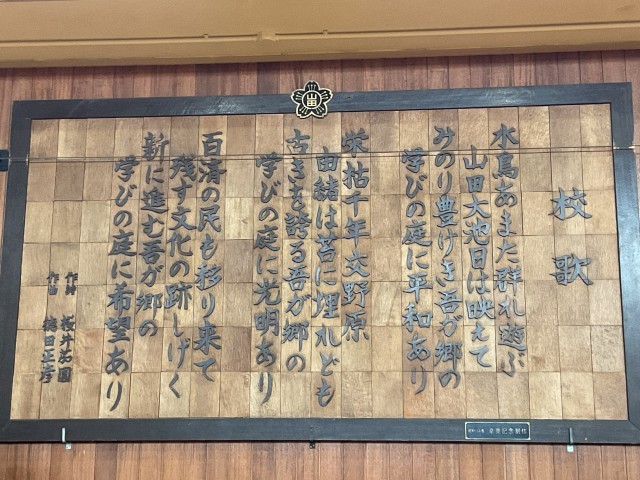 校歌
水鳥あまた群れ遊ぶ
山田大池日は映えて
みのり豊けき吾が郷の
学びの庭に平和あり
栄枯千年交野原
由緒は苔に埋れども
古きを誇る吾が郷の
学びの庭に光明あり
百済の民も移り来て
残す文化の跡しげく
新に進む吾が郷の
学びの庭に希望あり
作詩 桜井
作曲 徳田正彦
山田
卒業記念製作